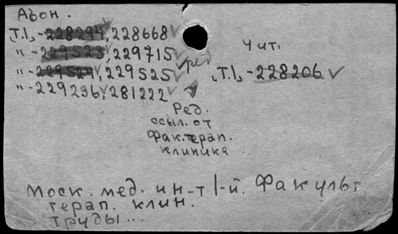 Абон.
Т.1,-228294,228668
"-229523,229715
"-229524,229525
"-229236,281222
Чит.
Т.1,-228206
Ред.
ссыл. от
Фак. терап.
клиника
Моск. мед. ин-т 1-й. Факульт.
терап. клин.
Труды...